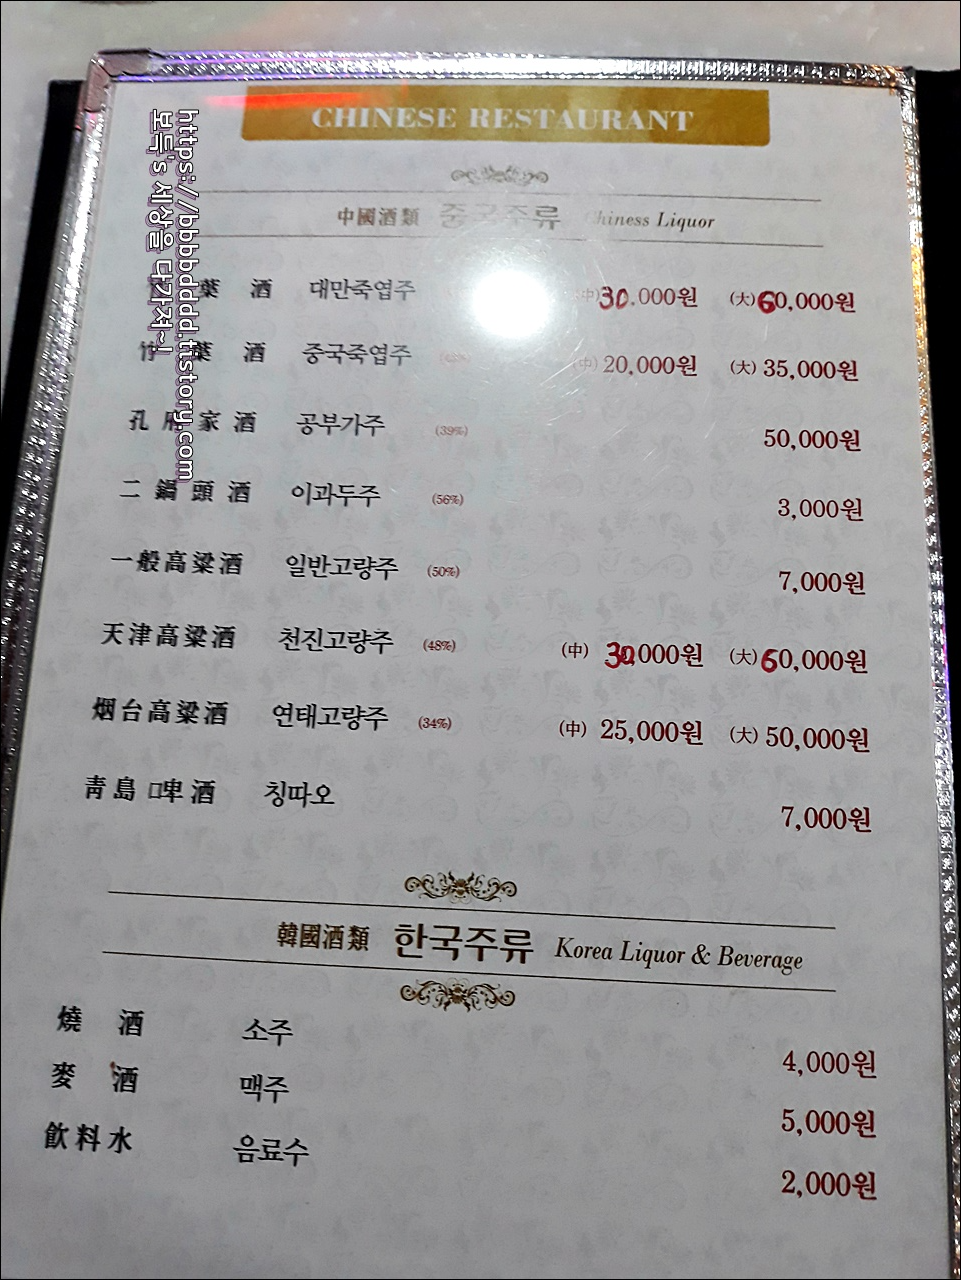 CHINESE RESTAURANT
https://bbbbdddd.tistory.com
보득's 세상을 다가져~!
中國酒類 중국주류 Chiness Liquor
葉 酒 대만죽엽주 (中)30.000원 (大)60,000원
竹 葉 酒 중국죽엽주 (中) 20,000원 (大) 35,000원
孔 府 家 酒 공부가주 (39%) 50,000원
二 鍋 頭 酒 이과두주 (56%) 3,000원
一般高粱酒 일반고량주 (50%) 7,000원
天津高粱酒 천진고량주 (48%) (中) 30,000원 (大) 60,000원
烟台高粱酒 연태고량주 (34%) (中) 25,000원 (大) 50,000원
靑島 □啤酒 칭따오 7,000원
韓國酒類 한국주류 Korea Liquor & Beverage
燒 酒 소주 4,000원
麥 酒 맥주 5,000원
飮料水 음료수 2,000원